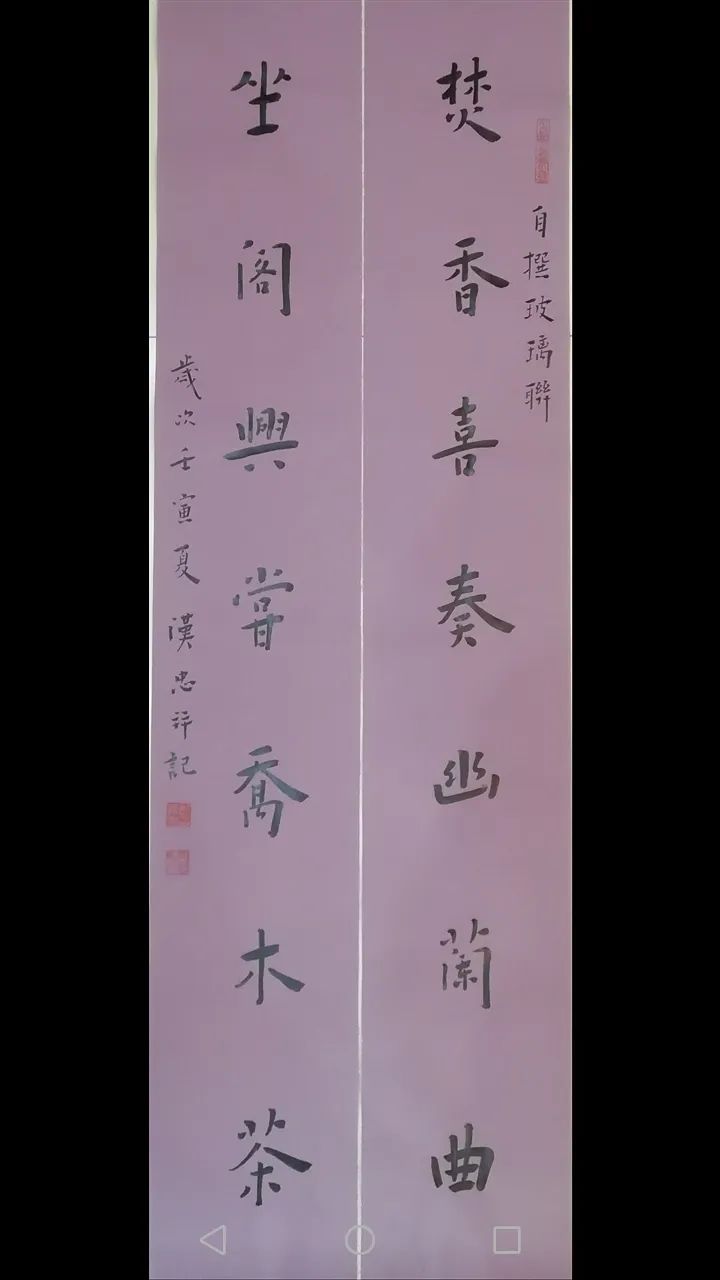 自撰玻璃聯
焚香喜奏幽蘭曲
坐閣興嘗喬木茶
歲次壬寅夏漢忠并記